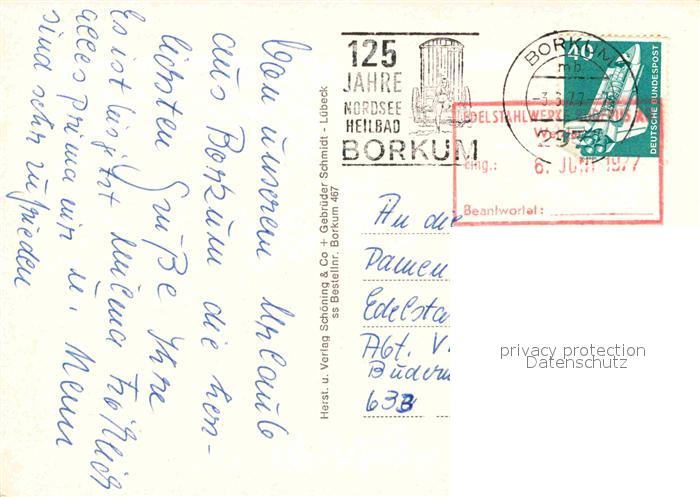 Von unserem Urlaub
aus Borkum die herz-
lichsten Grüße Ihre
Es ist bis jetzt
alles prima wir u. Mann
sind sehr zufrieden
Herst. u. Verlag Schöning & Co + Gebrüder Schmidt - Lübeck
ss Bestellnr. Borkum 467
125
JAHRE
NORDSEE
HEILBAD
BORKUM
BORKUM
mb
40
DEUTSCHE BUNDESPOST
EDELSTAHLWERKE
Eing.: 6. JUNI 1977
Beantwortet:
An die
Damen
Edelsta
Abt. V
Buderu
633
privacy protection
Datenschutz